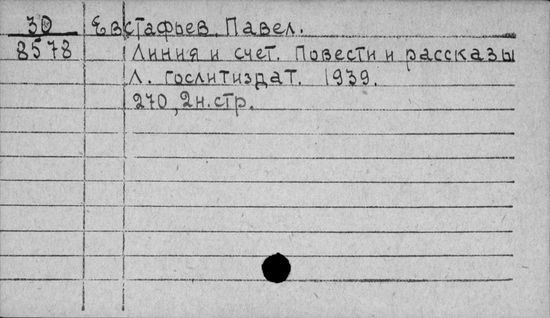 30 Евстафьев Павел.
8578 Линия и счет. Повести и рассказы
Л. Гослитиздат. 1939.
270, 2 н. стр.